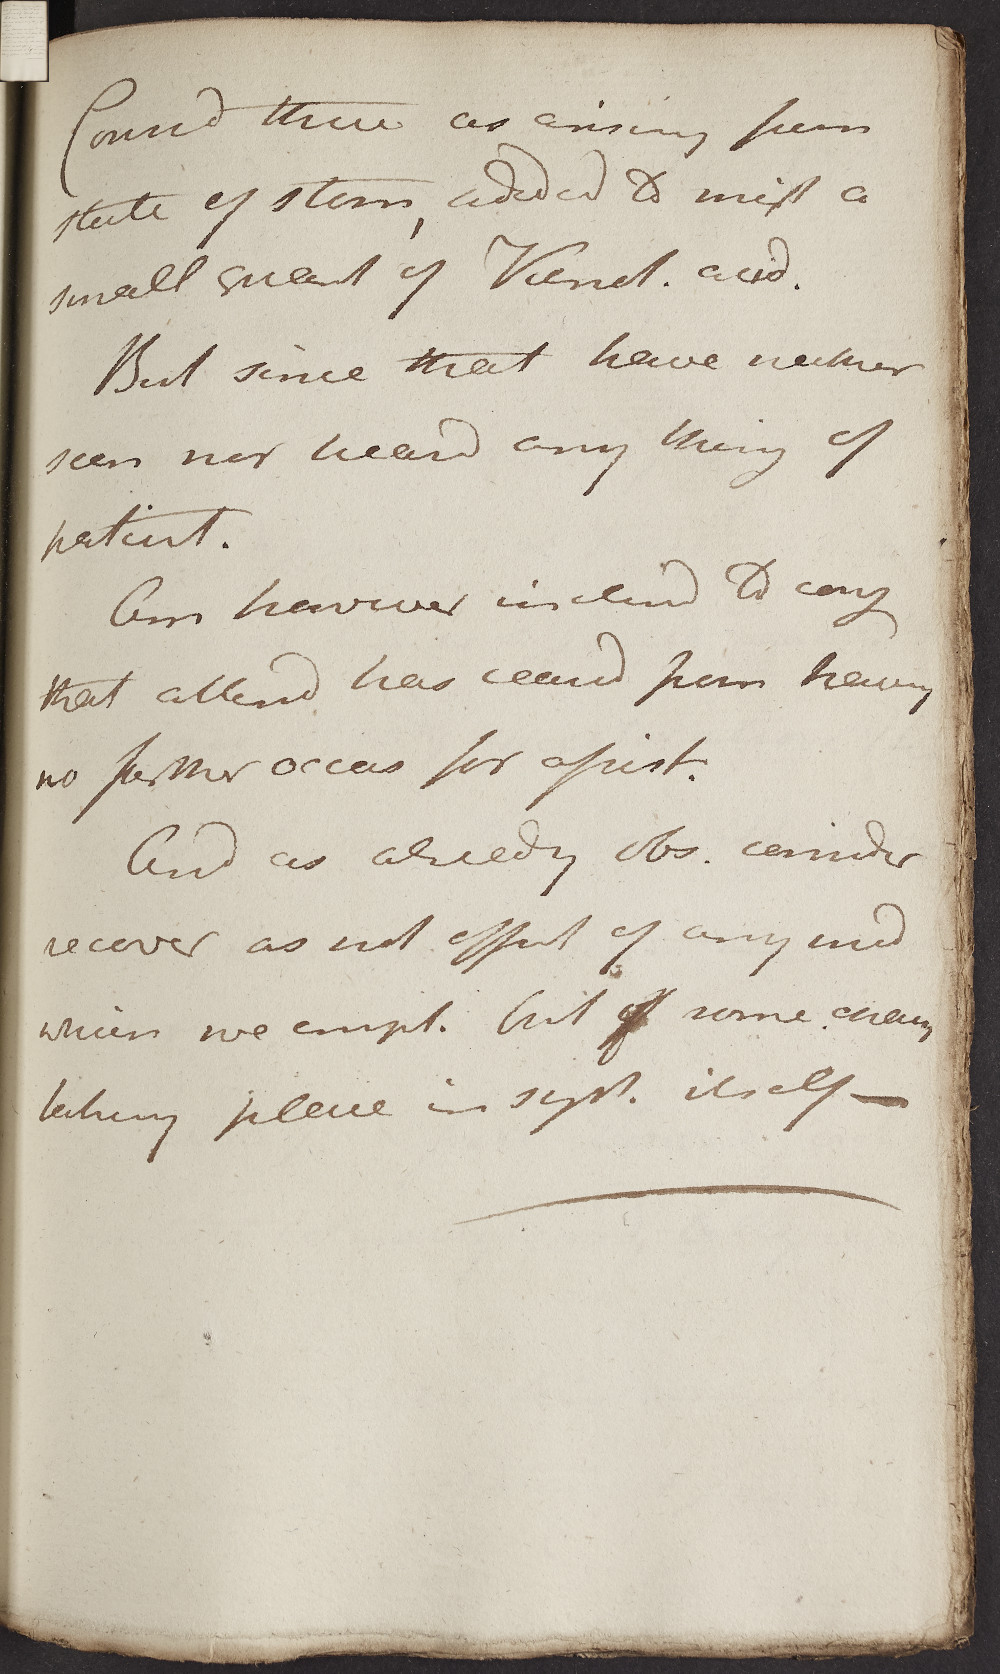 Consid these as arising from
state of stom, added to mixt a
small quant of Vitriol. acid.
But since that have neither
seen nor heard any thing of
patient.
Am however inclind to conj
that attend has ceasd from having
no farther occas for assist.
And as already obs. consider
recover as not effect of any med
which we empt. but of some chang
taking place in syst. itself —